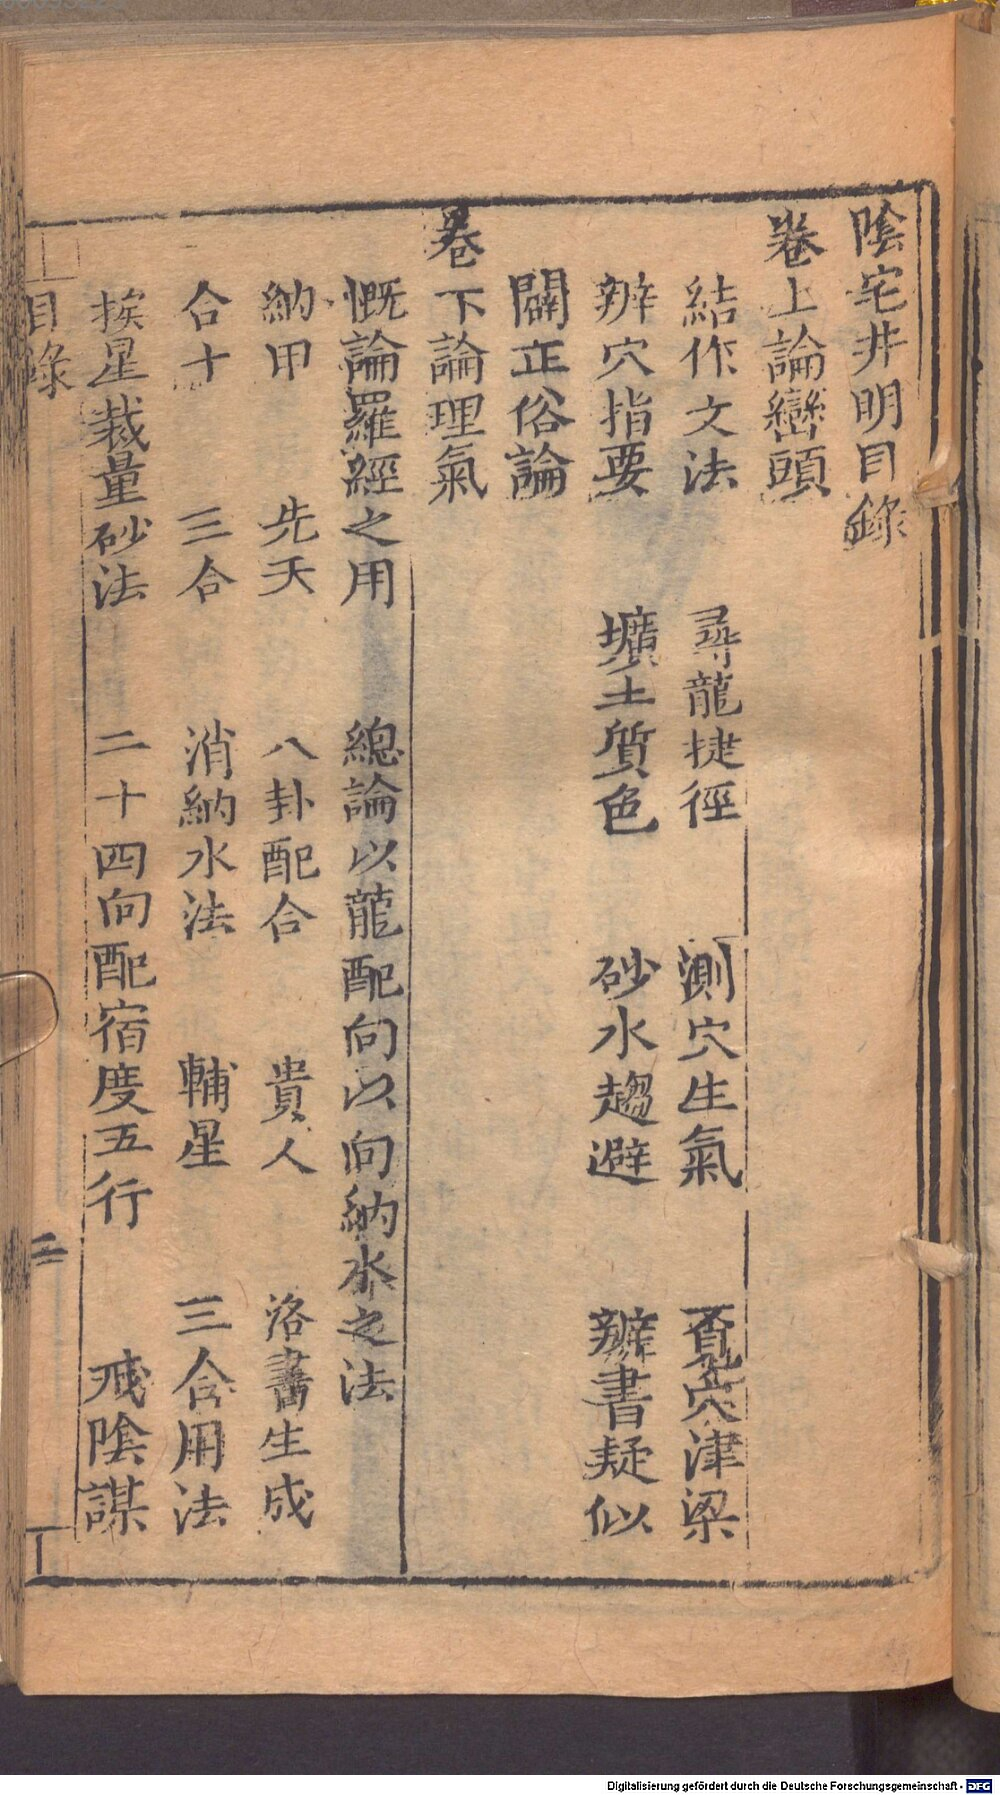 陰宅井明目錄
卷上論巒頭
結作文法 尋龍捷徑 測穴生氣 覔穴津梁
辨穴指要 壙土質色 砂水趨避 辦書疑似
闢正俗論
卷下論理氣
慨論羅經之用 總論以龍配向以向納水之法
納甲 先天 八卦配合 貴人 洛書生成
合十 三合 消納水法 輔星 三合用法
挨星裁量砂法 二十四向配宿度五行 戒陰謀
目錄 二
Digitalisierung gefördert durch die Deutsche Forschungsgemeinschaft - DFG